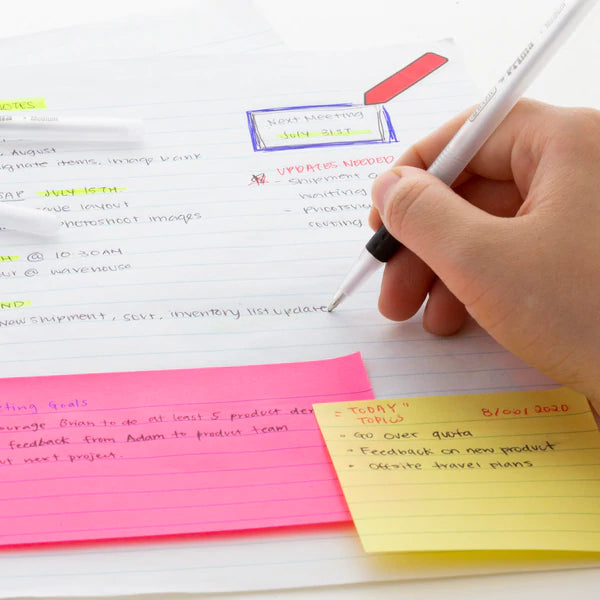 NOTES
August
signate items, image bank
SAP JULY 15TH.
layout
photoshoot images
@ 10:30AM
our @ warehouse
new shipment, sort, inventory list update
Next Meeting
JULY 31ST
UPDATES NEEDED
- Shipment
waiting
-
Medium
Prima
eting Goals
ourage Brian to do at least 5 product de
feedback from Adam to product team
ut next project.
= "TODAY"
TOPICS
8/06/2020
- Go over quota
- Feedback on new product
- Offsite travel plans